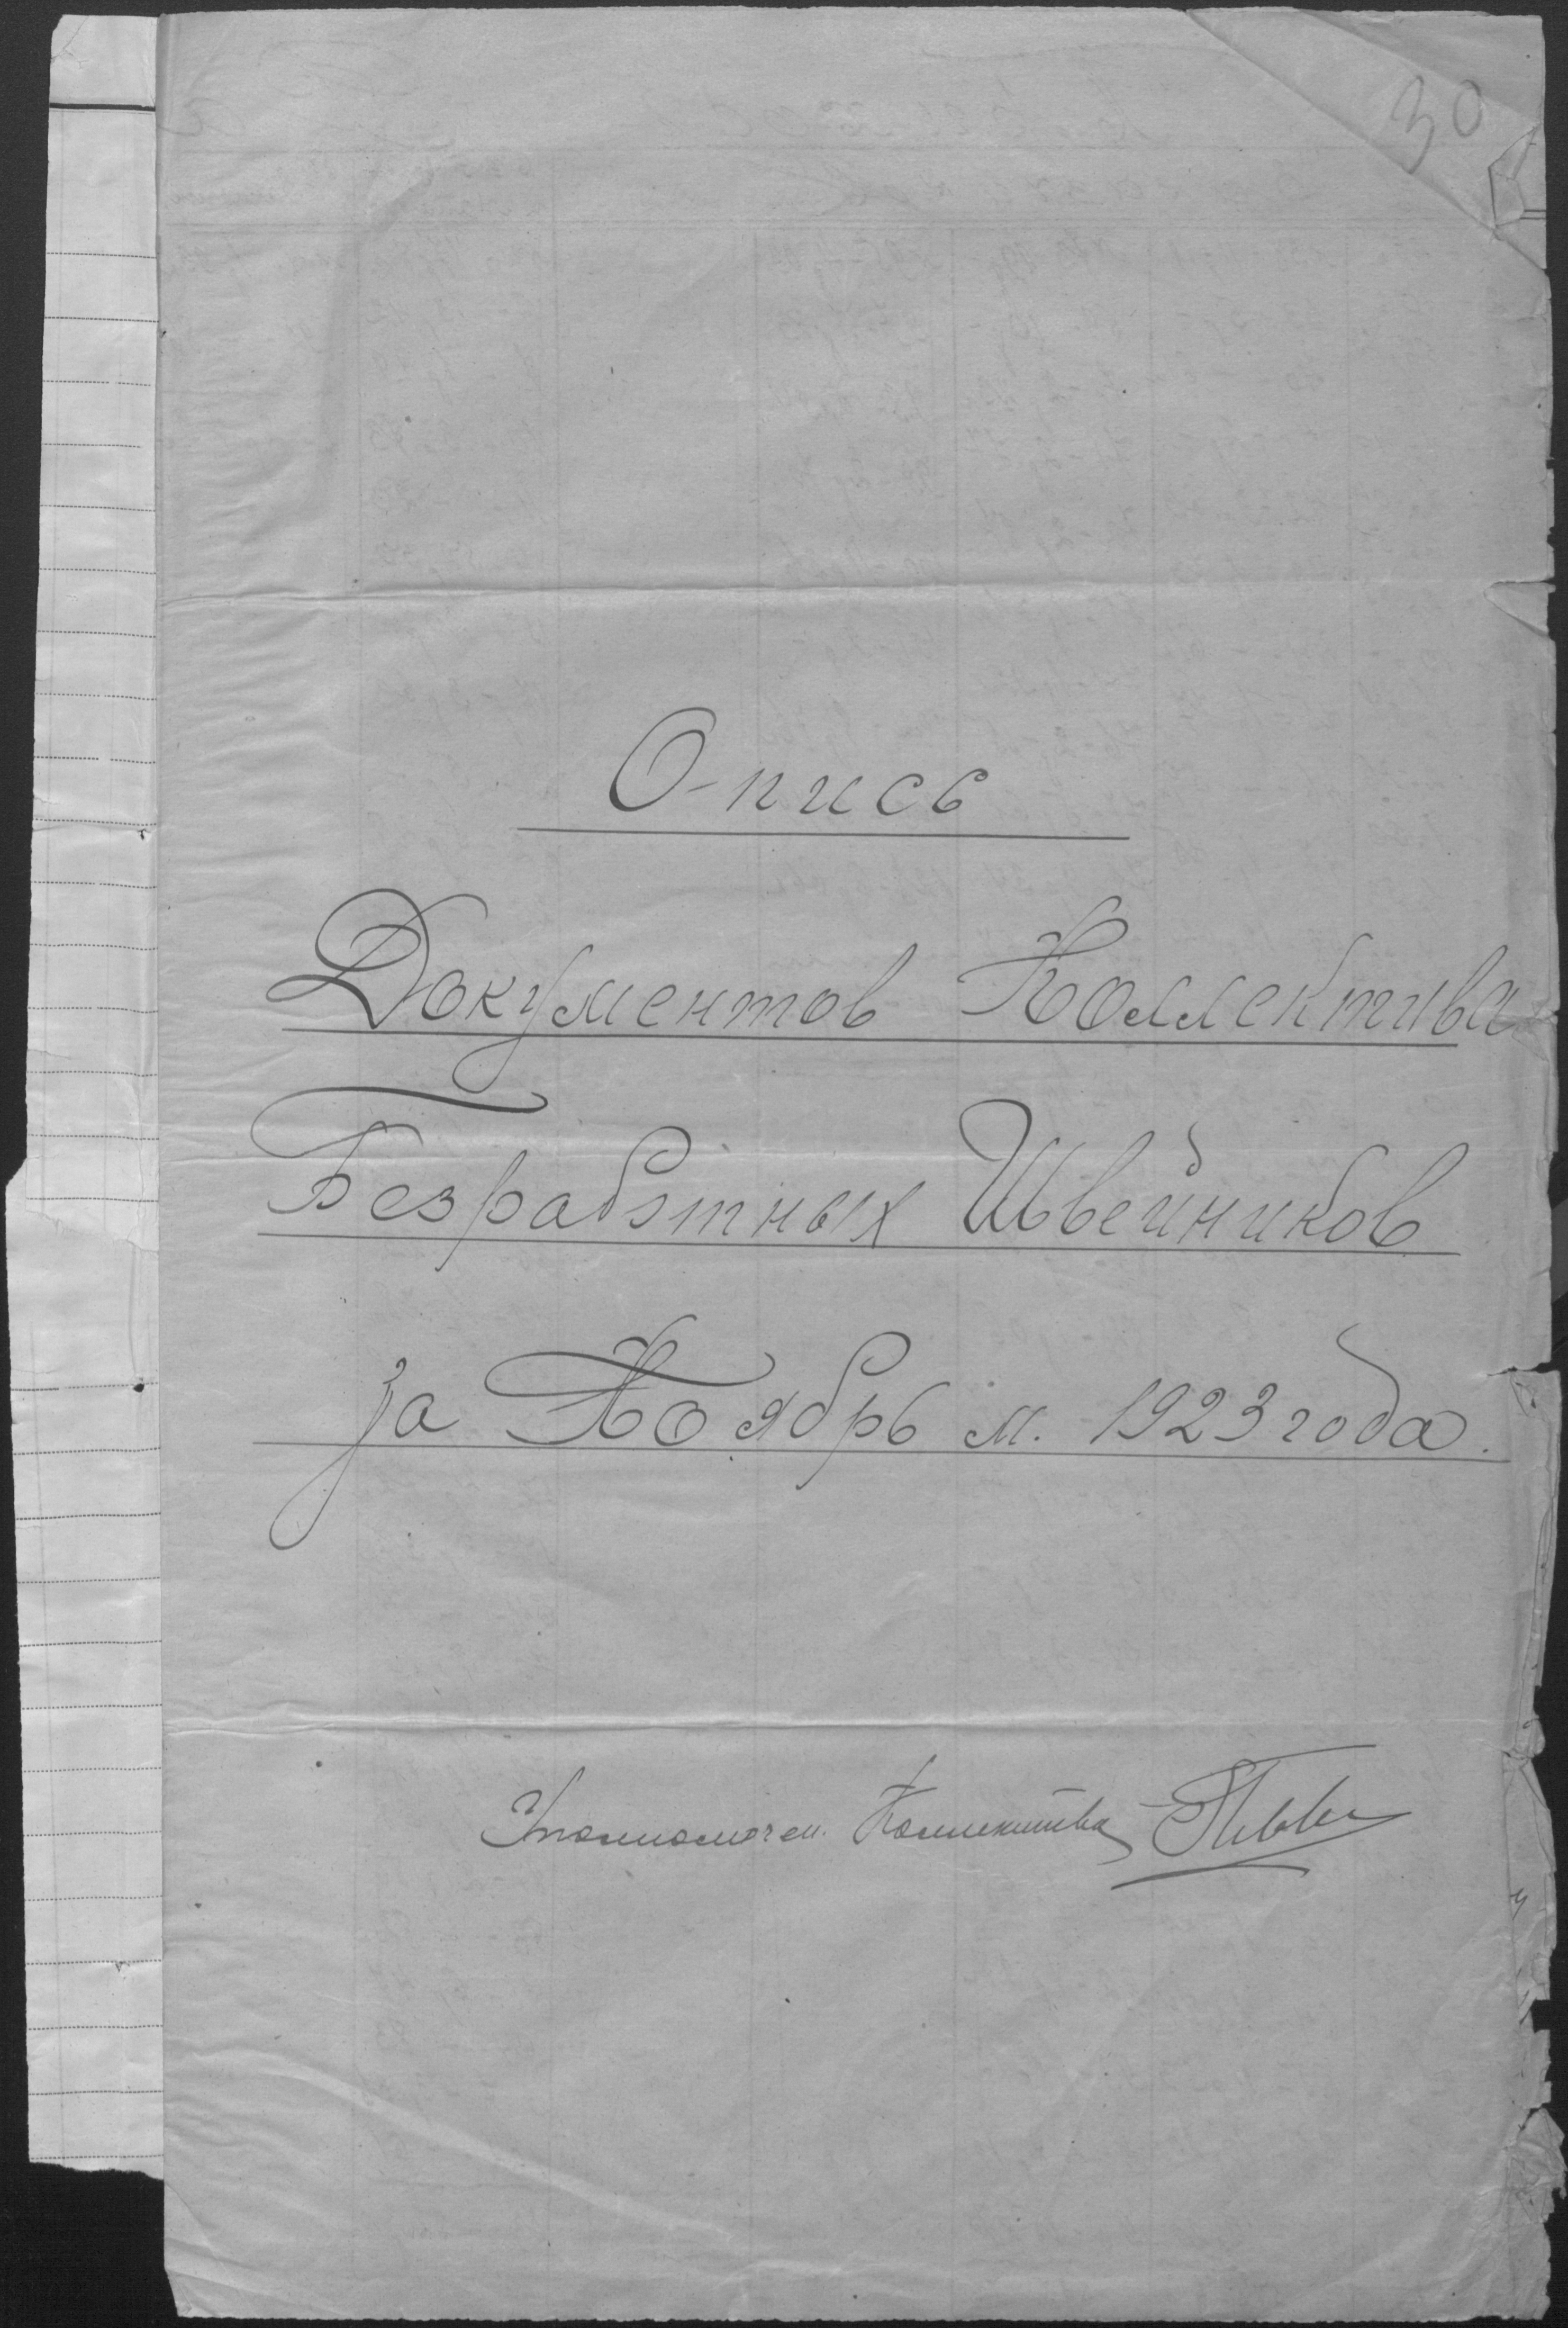 30
Опись
Документов Коллектива
Безработных Швейников
за Ноябрь м. 1923 года.
Уполномочен. Коллектива